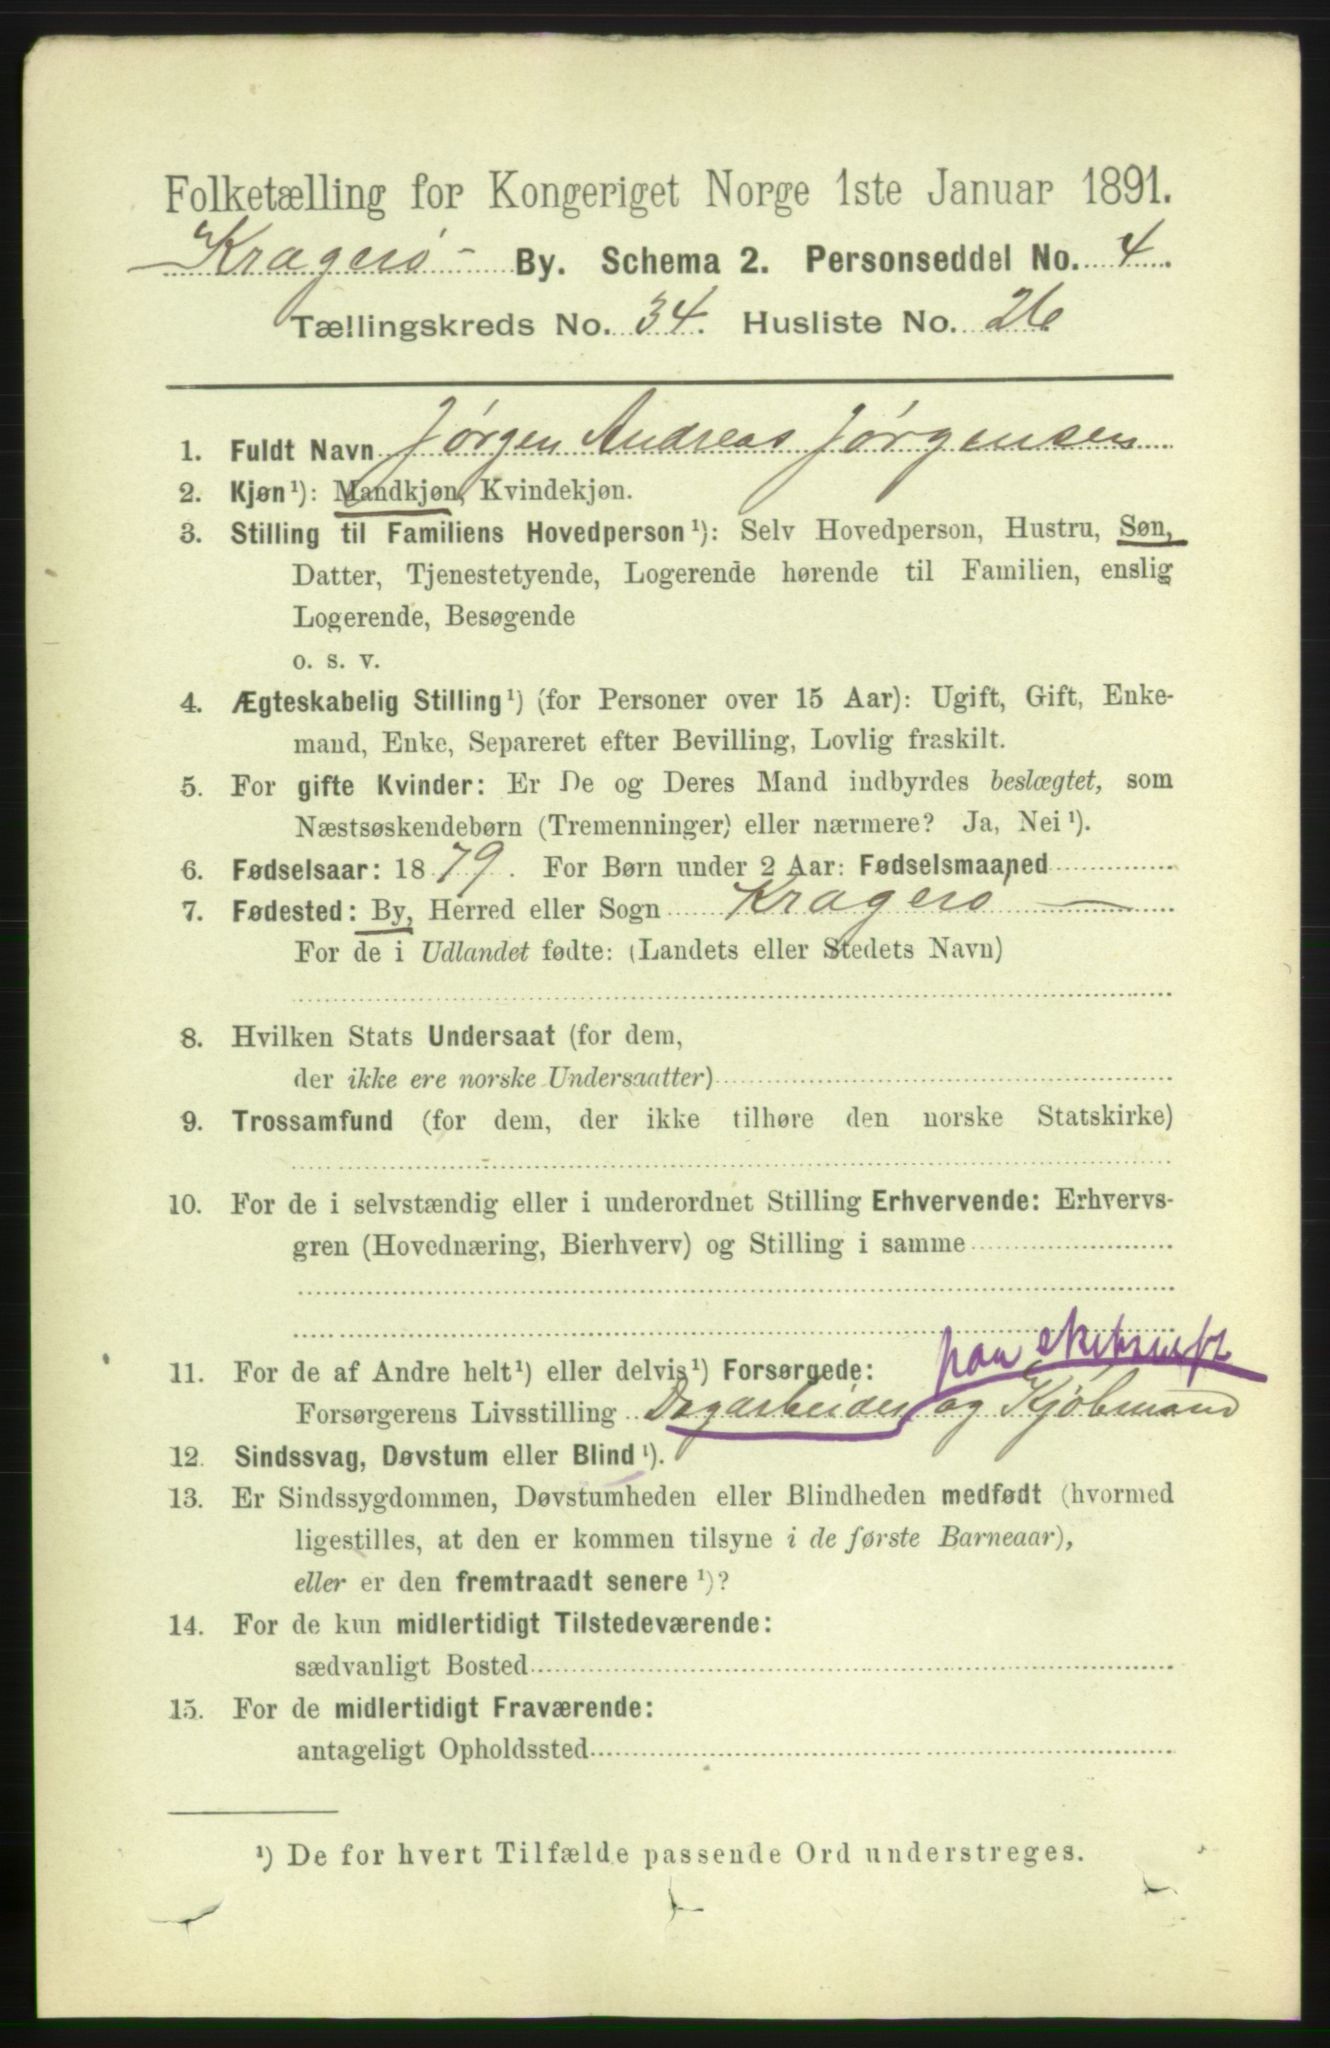 Folketælling for Kongeriget Norge 1ste Januar 1891.
Kragerø By. Schema 2. Personseddel No. 4.
Tællingskreds No. 34. Husliste No. 26
1. Fuldt Navn Jørgen Andreas Jørgensen
2. Kjøn¹): Mandkjøn, Kvindekjøn.
3. Stilling til Familiens Hovedperson¹): Selv Hovedperson, Hustru, Søn,
Datter, Tjenestetyende, Logerende hørende til Familien, enslig
Logerende, Besøgende
o. s. v.
4. Ægteskabelig Stilling¹) (for Personer over 15 Aar): Ugift, Gift, Enke-
mand, Enke, Separeret efter Bevilling, Lovlig fraskilt.
5. For gifte Kvinder: Er De og Deres Mand indbyrdes beslægtet, som
Næstsøskendebørn (Tremenninger) eller nærmere? Ja, Nei¹).
6. Fødselsaar: 1879. For Børn under 2 Aar: Fødselsmaaned
7. Fødested: By, Herred eller Sogn Kragerø
For de i Udlandet fødte: (Landets eller Stedets Navn)
8. Hvilken Stats Undersaat (for dem,
der ikke ere norske Undersaatter)
9. Trossamfund (for dem, der ikke tilhøre den norske Statskirke)
10. For de i selvstændig eller i underordnet Stilling Erhvervende: Erhvervs-
gren (Hovednæring, Bierhverv) og Stilling i samme
paa
11. For de af Andre helt¹) eller delvis¹) Forsørgede:
Forsørgerens Livsstilling Dagarbeider og Kjøbmand
12. Sindssvag, Døvstum eller Blind¹).
13. Er Sindssygdommen, Døvstumheden eller Blindheden medfødt (hvormed
ligestilles, at den er kommen tilsyne i de første Barneaar),
eller er den fremtraadt senere¹)?
14. For de kun midlertidigt Tilstedeværende:
sædvanligt Bosted
15. For de midlertidigt Fraværende:
antageligt Opholdssted
¹) De for hvert Tilfælde passende Ord understreges.